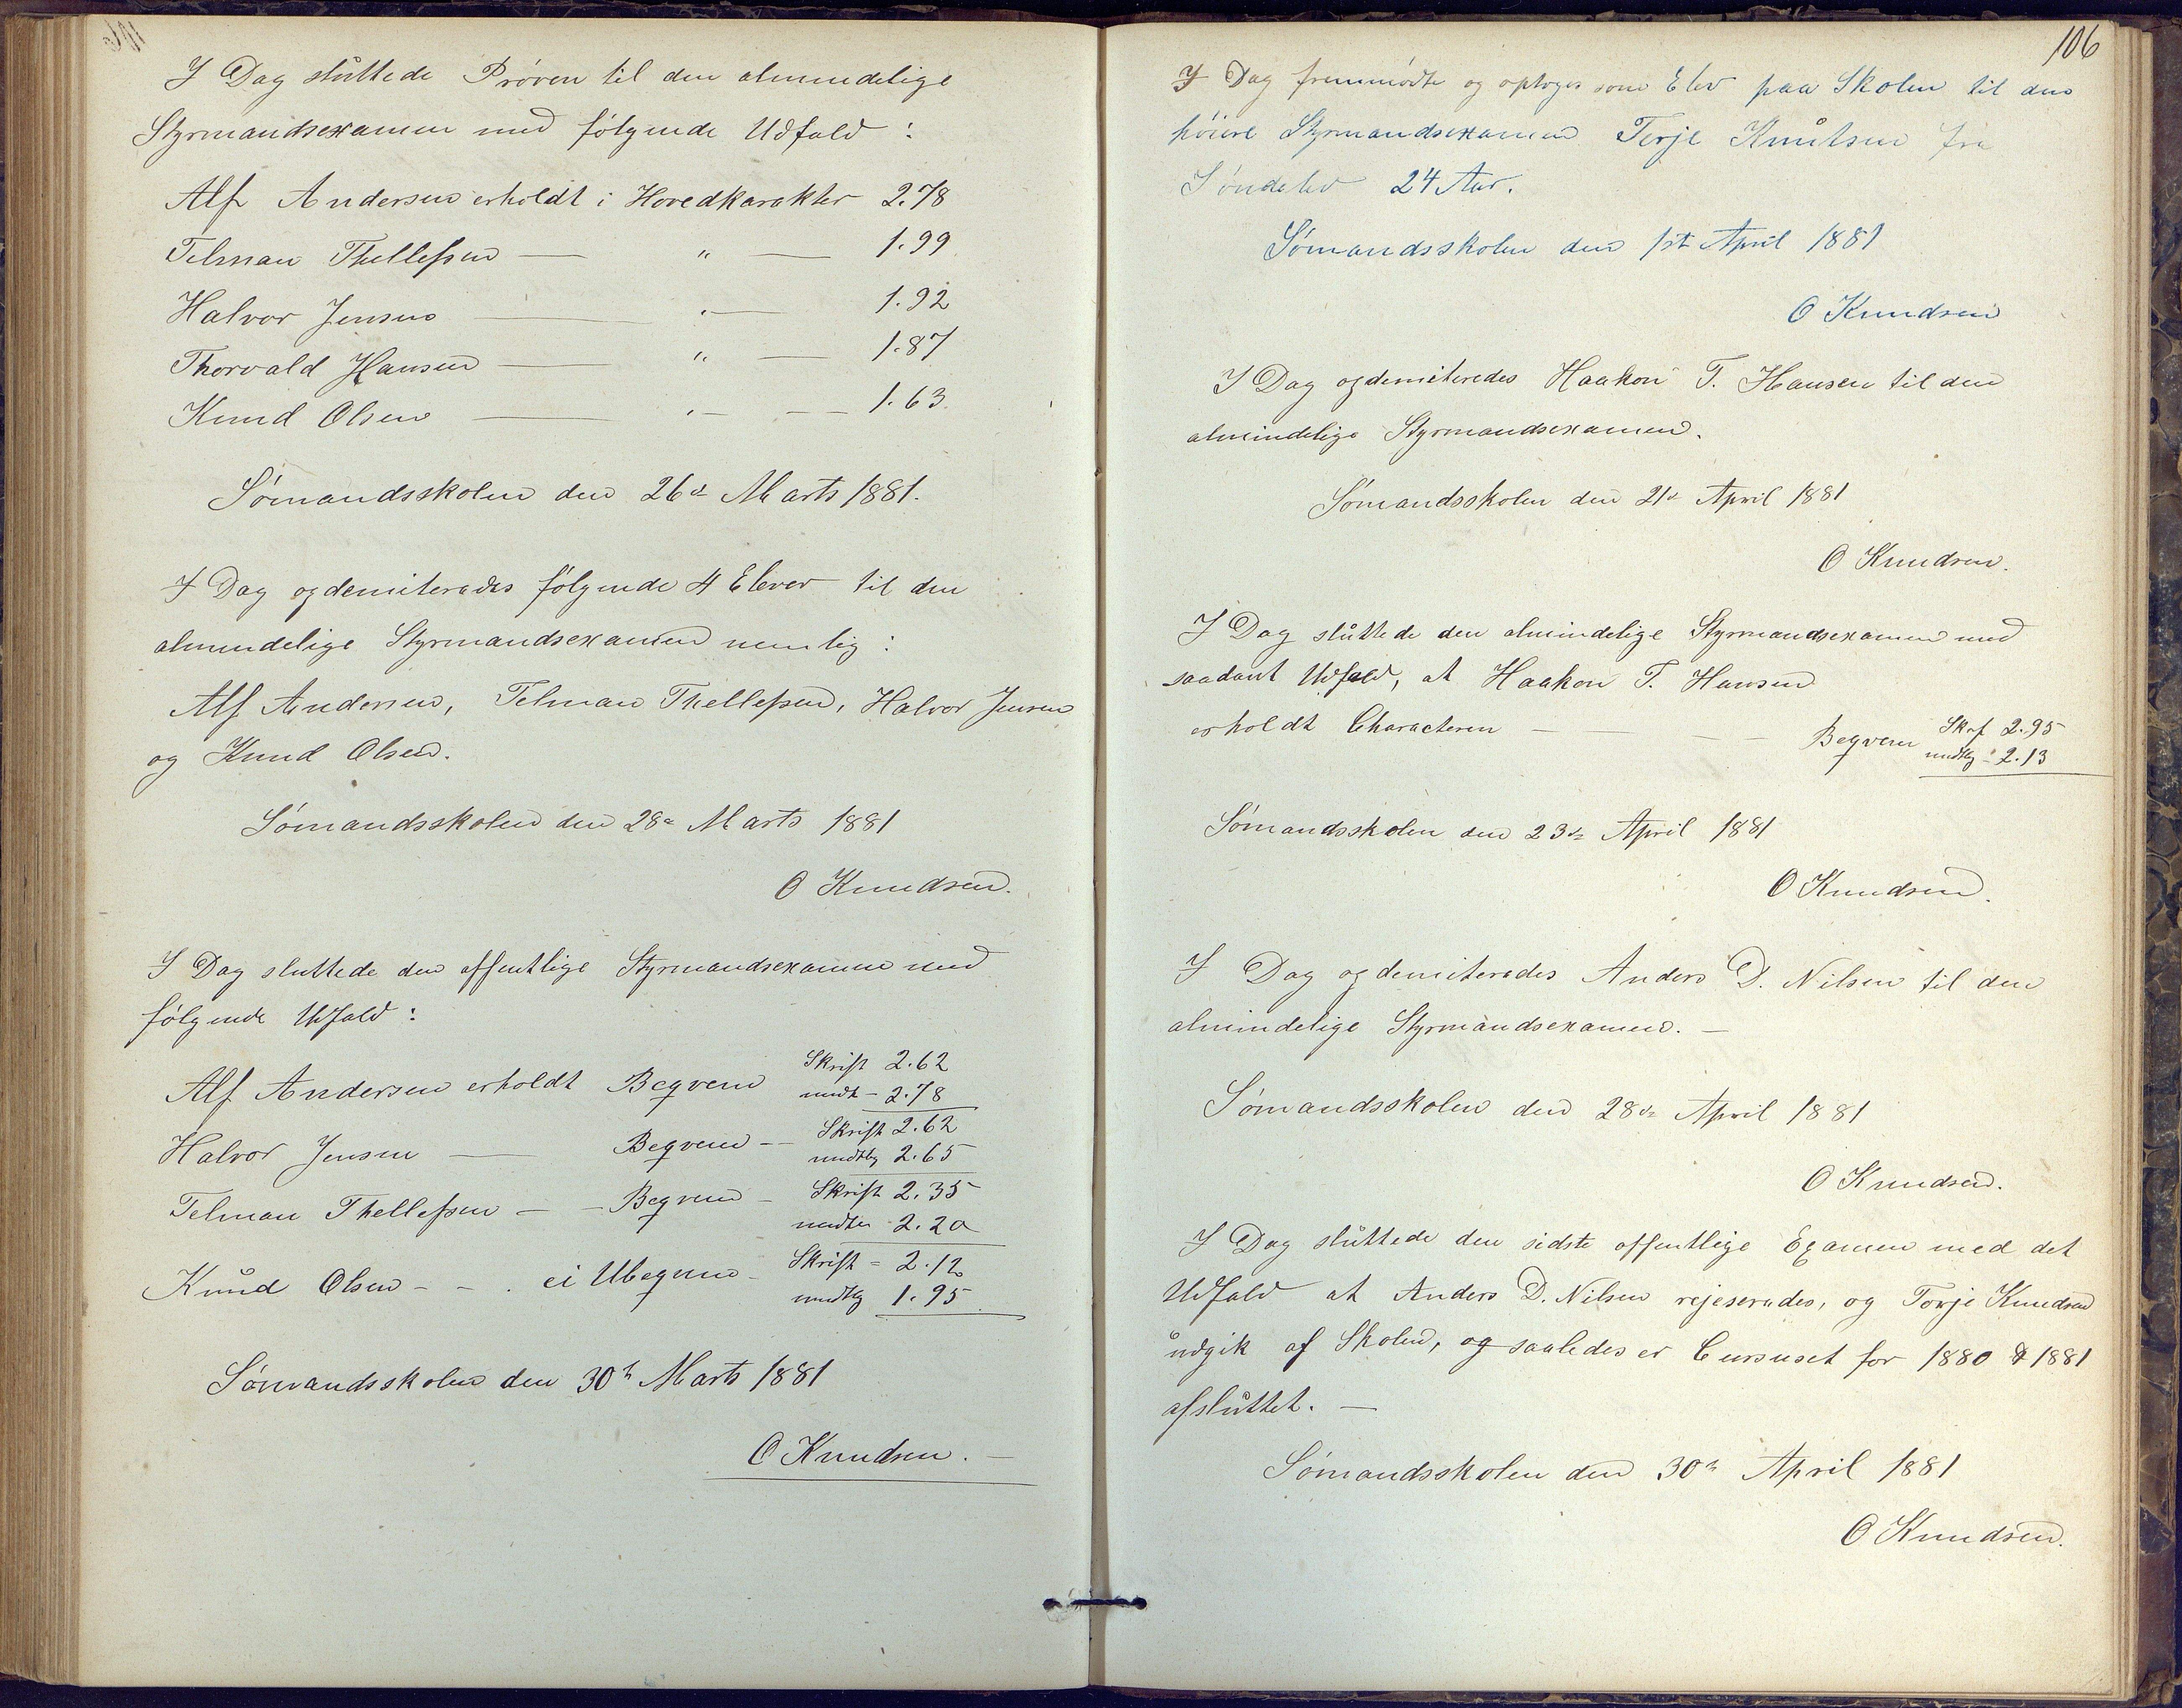 I Dag sluttede Prøven til den almindelige
Styrmandsexamen med følgende Udfald:
Alf Andersen erholdt i Hovedkarakter 2.78
Telman Thellefsen — " — 1.99
Halvor Jensen — " — 1.92
Thorvald Hansen — " — 1.87
Knud Olsen — " — 1.63
Sømandsskolen den 26de Marts 1881.
I Dag ogdemiteredes følgende 4 Elever til den
almindelige Styrmandsexamen nemlig:
Alf Andersen, Telman Thellefsen, Halvor Jensen
og Knud Olsen.
Sømandsskolen den 28de Marts 1881
O Knudsen.
I Dag sluttede den offentlige Styrmandsexamen med
følgende Udfald:
Alf Andersen erholdt Beqvem Skrift 2.62
mndt - 2.78
Halvor Jensen — Beqvem -- Skrift 2.62
mndtlg 2.65
Telman Thellefsen — - Beqvem - Skrift 2.35
mndtl 2.20
Knud Olsen - - . ei Ubeqvem - Skrift - 2.12
mndtlg 1.95
Sømandsskolen den 30te Marts 1881
O Knudsen. —
106
I Dag fremmødte og optoges som Elev paa Skolen til den
høiere Styrmandsexamen Terje Knutsen fra
Søndelev 24 Aar.
Sømandsskolen den 1st April 1881
O Knudsen
I Dag ogdemiteredes Haakon T. Hansen til den
almindelige Styrmandsexamen.
Sømandsskolen den 21de April 1881
O Knudsen.
I Dag sluttede den almindelige Styrmandsexamen med
saadant Udfald, at Haakon T. Hansen
erholdt Characteren — — — — Beqvem Skrf 2.95
mndtlg - 2.13
Sømandsskolen den 23de April 1881
O Knudsen.
I Dag ogdemiteredes Anders D. Nilsen til den
almindelige Styrmandsexamen. —
Sømandsskolen den 28de April 1881
O Knudsen.
I Dag sluttede den sidste offentlige Examen med det
Udfald at Anders D. Nilsen rejeseredes, og Terje Knudsen
udgik af Skolen, og saaledes er Cursuset for 1880 & 1881
afsluttet. —
Sømandsskolen den 30te April 1881
O Knudsen.